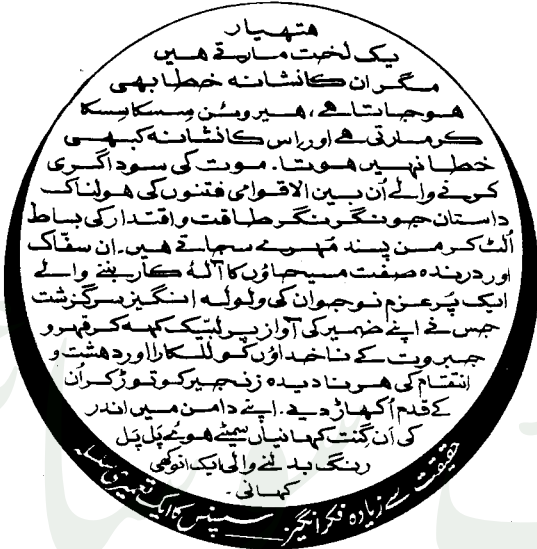 ہتھیار
یک لخت مارتے ہیں
مگر ان کا نشانہ خطا بھی
ہو جاتا ہے، ہیروئن سسکا سسکا
کر مارتی ہے اور اس کا نشانہ کبھی
خطا نہیں ہوتا۔ موت کی سوداگری
کرنے والے اُن بین الاقوامی فتنوں کی ہولناک
داستان جو نگر نگر طاقت و اقتدار کی بساط
اُلٹ کر من پسند مُہرے سجاتے ہیں۔ ان سفّاک
اور درندہ صفت مسیحاؤں کا آلۂ کار بننے والے
ایک پُرعزم نوجوان کی ولولہ انگیز سرگزشت
جس نے اپنے ضمیر کی آواز پر لبیّک کہہ کر قہر و
جبروت کے ناخداؤں کو للکارا اور دہشت و
انتقام کی ہر نادیدہ زنجیر کو توڑ کر اُن
کے قدم اُکھاڑ دیے۔ اپنے دامن میں اندر
کی اَن گِنت کہانیاں سمیٹے ہوئے پَل پَل
رنگ بدلنے والی ایک انوکھی
کہانی۔
حقیقت سے زیادہ فکر انگیز ــــ سسپنس کا ایک تعمیری سلسلہ